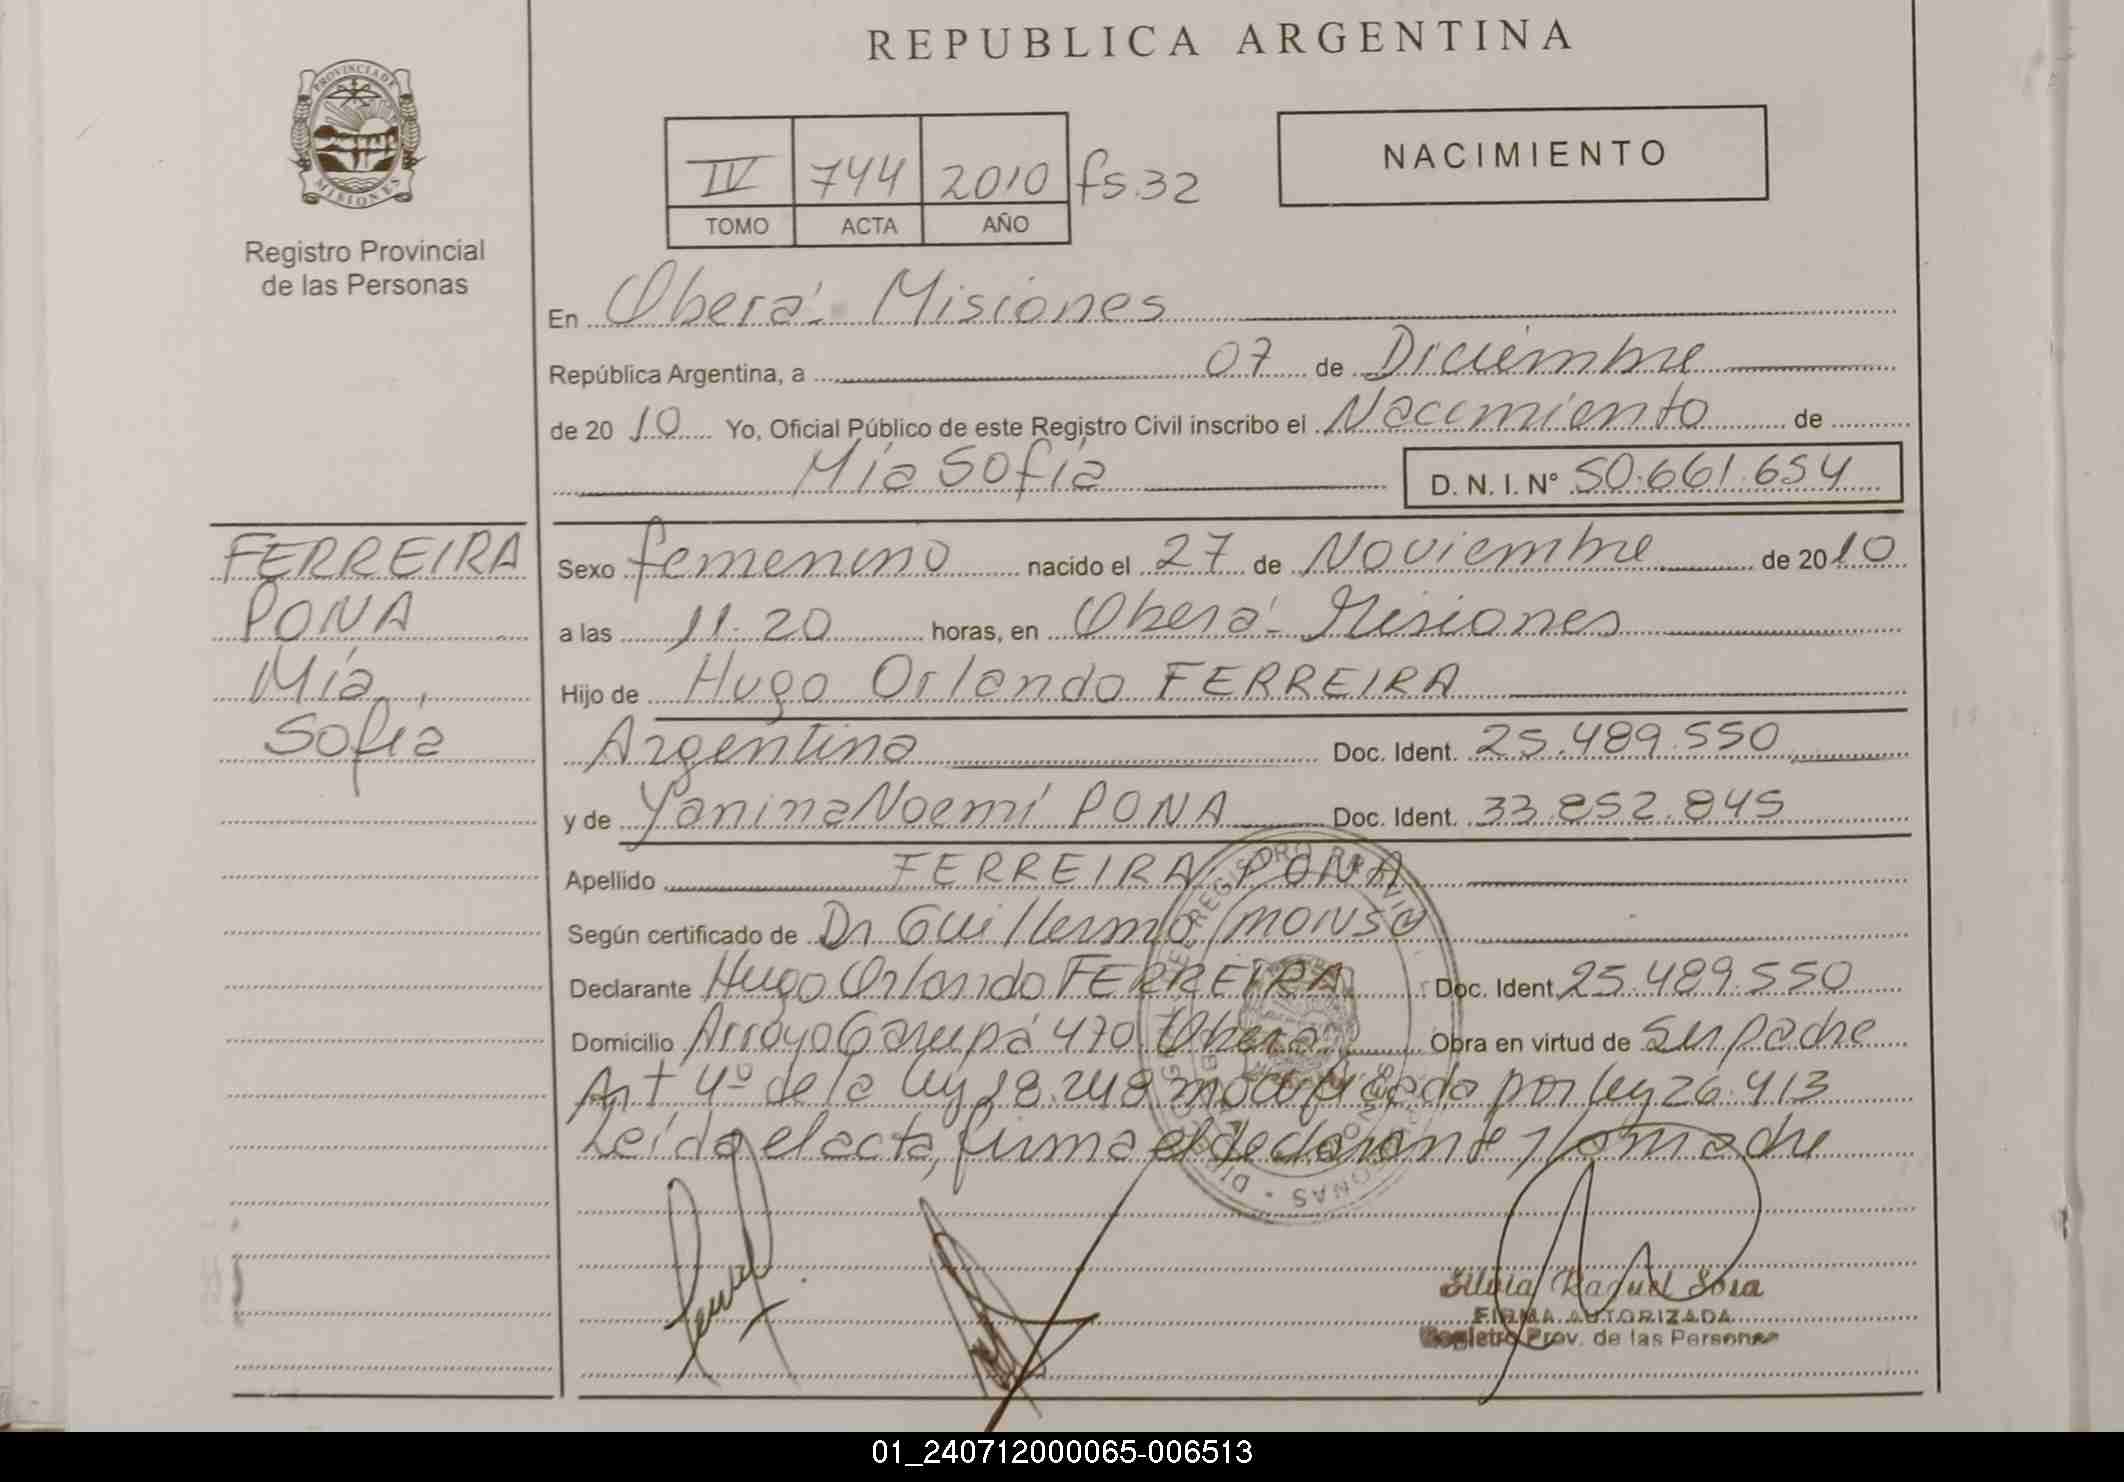 REPUBLICA ARGENTINA
PROVINCIA DE
MISIONES
Registro Provincial
de las Personas
NACIMIENTO
IV 744 2010 fs. 32
TOMO ACTA AÑO
En Oberá - Misiones
República Argentina, a 07 de Diciembre
de 2010 Yo, Oficial Público de este Registro Civil inscribo el Nacimiento de
Mía Sofía D. N. I. N° 50.661.654
FERREIRA
PONA
Mía
Sofía
Sexo femenino nacido el 27 de Noviembre de 2010
a las 11.20 horas, en Oberá - Misiones
Hijo de Hugo Orlando FERREIRA
Argentino Doc. Ident. 25.489.550
y de Yanina Noemí PONA Doc. Ident. 33.852.845
Apellido FERREIRA PONA
Según certificado de Dr Guillermo MONSO
Declarante Hugo Orlando FERREIRA Doc. Ident 25.489.550
Domicilio Arroyo Garupá 470 Oberá Obra en virtud de Ser padre
Art 4º de la Ley 18.248 modificada por ley 26.413
Leída el acta, firma el declarante y la madre
Silvia Raquel Sosa
FIRMA AUTORIZADA
Registro Prov. de las Personas
01_240712000065-006513